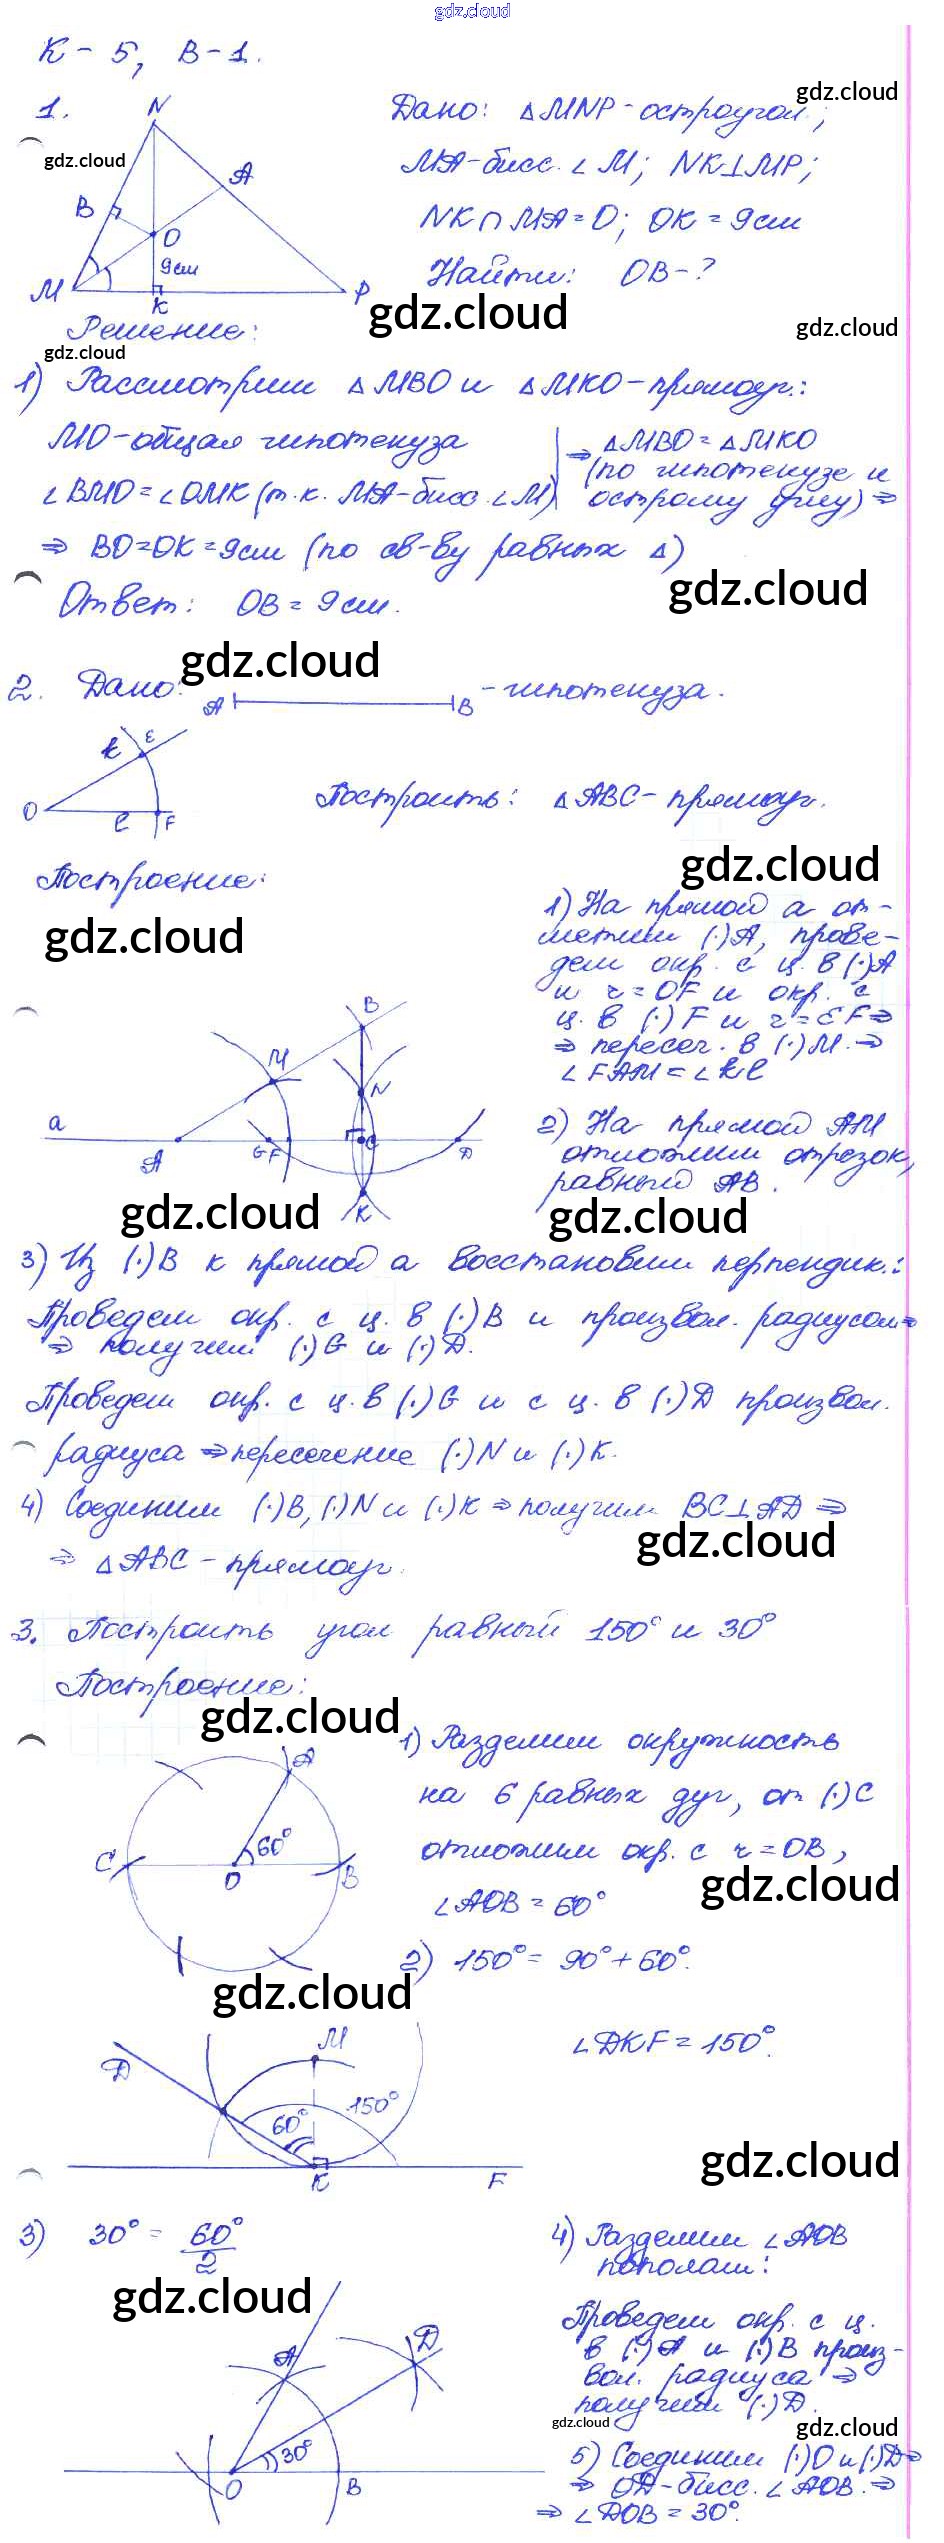 gdz.cloud
К – 5, В – 1.
1.
N
A
B
O
9см
M
K
P
Дано: △MNP – остроугол.;
MA – бисс. ∠M; NK⊥MP;
NK ∩ MA = O; OK = 9см
Найти: OB – ?
gdz.cloud
gdz.cloud
gdz.cloud
gdz.cloud
gdz.cloud
Решение:
1) Рассмотрим △MBO и △MKO – прямоуг.:
MO – общая гипотенуза
∠BMO = ∠OMK (т.к. MA – бисс. ∠M)
⇒ △MBO = △MKO
(по гипотенузе и
острому углу) ⇒
⇒ BO = OK = 9см (по св-ву равных △)
gdz.cloud
Ответ: OB = 9см.
gdz.cloud
2. Дано: A B – гипотенуза.
k E
O
l F
Построить: △ABC – прямоуг.
gdz.cloud
Построение:
gdz.cloud
1) На прямой a от-
метим (·)A, прове-
дем окр. с ц. в (·)A
и r = OF и окр. с
ц. в (·) F и r = EF ⇒
⇒ пересеч. в (·)M. ⇒
∠FAM = ∠kl
B
M
N
a
A
G F
C
D
K
2) На прямой AM
отложим отрезок,
равный AB.
gdz.cloud
gdz.cloud
3) Из (·)B к прямой a восстановим перпендик.:
Проведем окр. с ц. в (·)B и произвол. радиусом ⇒
⇒ получим (·)G и (·)D.
Проведем окр. с ц. в (·)G и с ц. в (·)D произвол.
радиуса ⇒ пересечение (·)N и (·)K.
4) Соединим (·)B, (·)N и (·)K ⇒ получим BC⊥AD ⇒
gdz.cloud
⇒ △ABC – прямоуг.
3. Построить угол равный 150° и 30°
Построение:
gdz.cloud
1) Разделим окружность
на 6 равных дуг, от (·)C
отложим окр. с r = OB,
∠AOB = 60°
A
60°
C
O
B
gdz.cloud
2) 150° = 90° + 60°.
gdz.cloud
∠DKF = 150°.
M
D
60°
150°
K
F
gdz.cloud
3) 30° = 60°
2
gdz.cloud
4) Разделим ∠AOB
пополам:
Проведем окр. с ц.
в (·)A и (·)B произ-
вол. радиуса ⇒
получим (·)D.
gdz.cloud
gdz.cloud
A
D
30°
O
B
5) Соединим (·)O и (·)D ⇒
⇒ OD – бисс. ∠AOB. ⇒
⇒ ∠DOB = 30°.